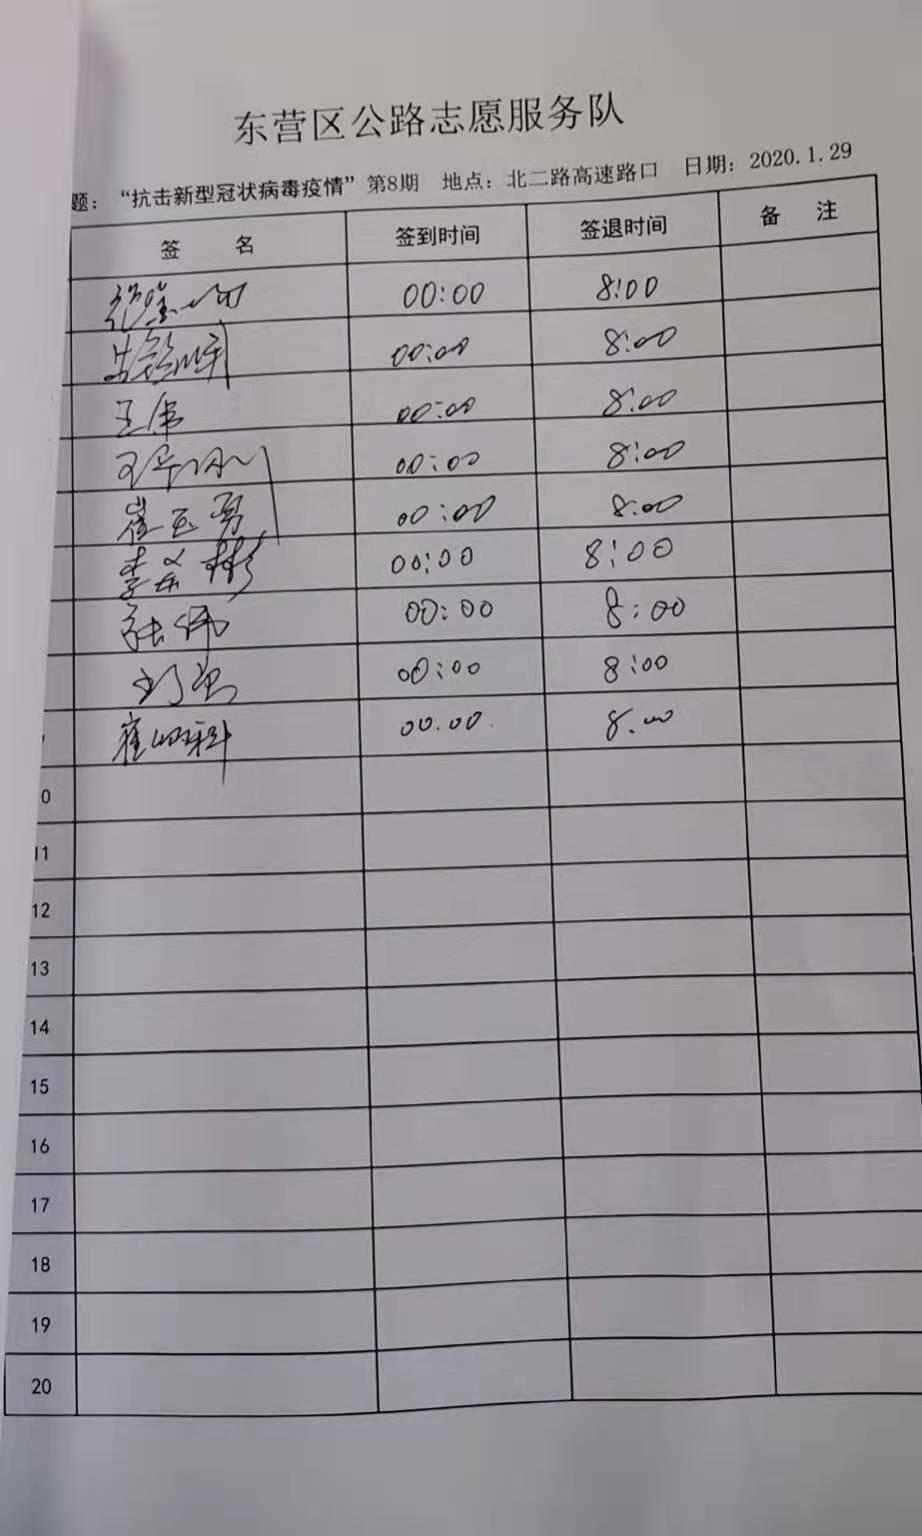 东营区公路志愿服务队
题：“抗击新型冠状病毒疫情”第8期 地点：北二路高速路口 日期：2020.1.29
签 名 签到时间 签退时间 备 注
00:00 8:00
00:00 8:00
王伟 00:00 8:00
00:00 8:00
崔玉勇 00:00 8:00
李 彬 00:00 8:00
张伟 00:00 8:00
00:00 8:00
崔 科 00.00. 8.00
0
11
12
13
14
15
16
17
18
19
20